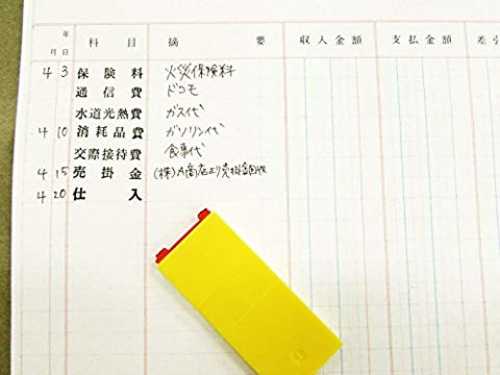 年
月 日 科 目 摘 要 収入金額 支払金額 差引
4 3 保険料 火災保険料
通信費 ドコモ
水道光熱費 ガス代
4 10 消耗品費 ガソリン代
交際接待費 食事代
4 15 売掛金 (株)A商店より売掛金回収
4 20 仕入